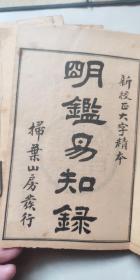 新校正大字精本
明鑑易知錄
掃葉山房發行